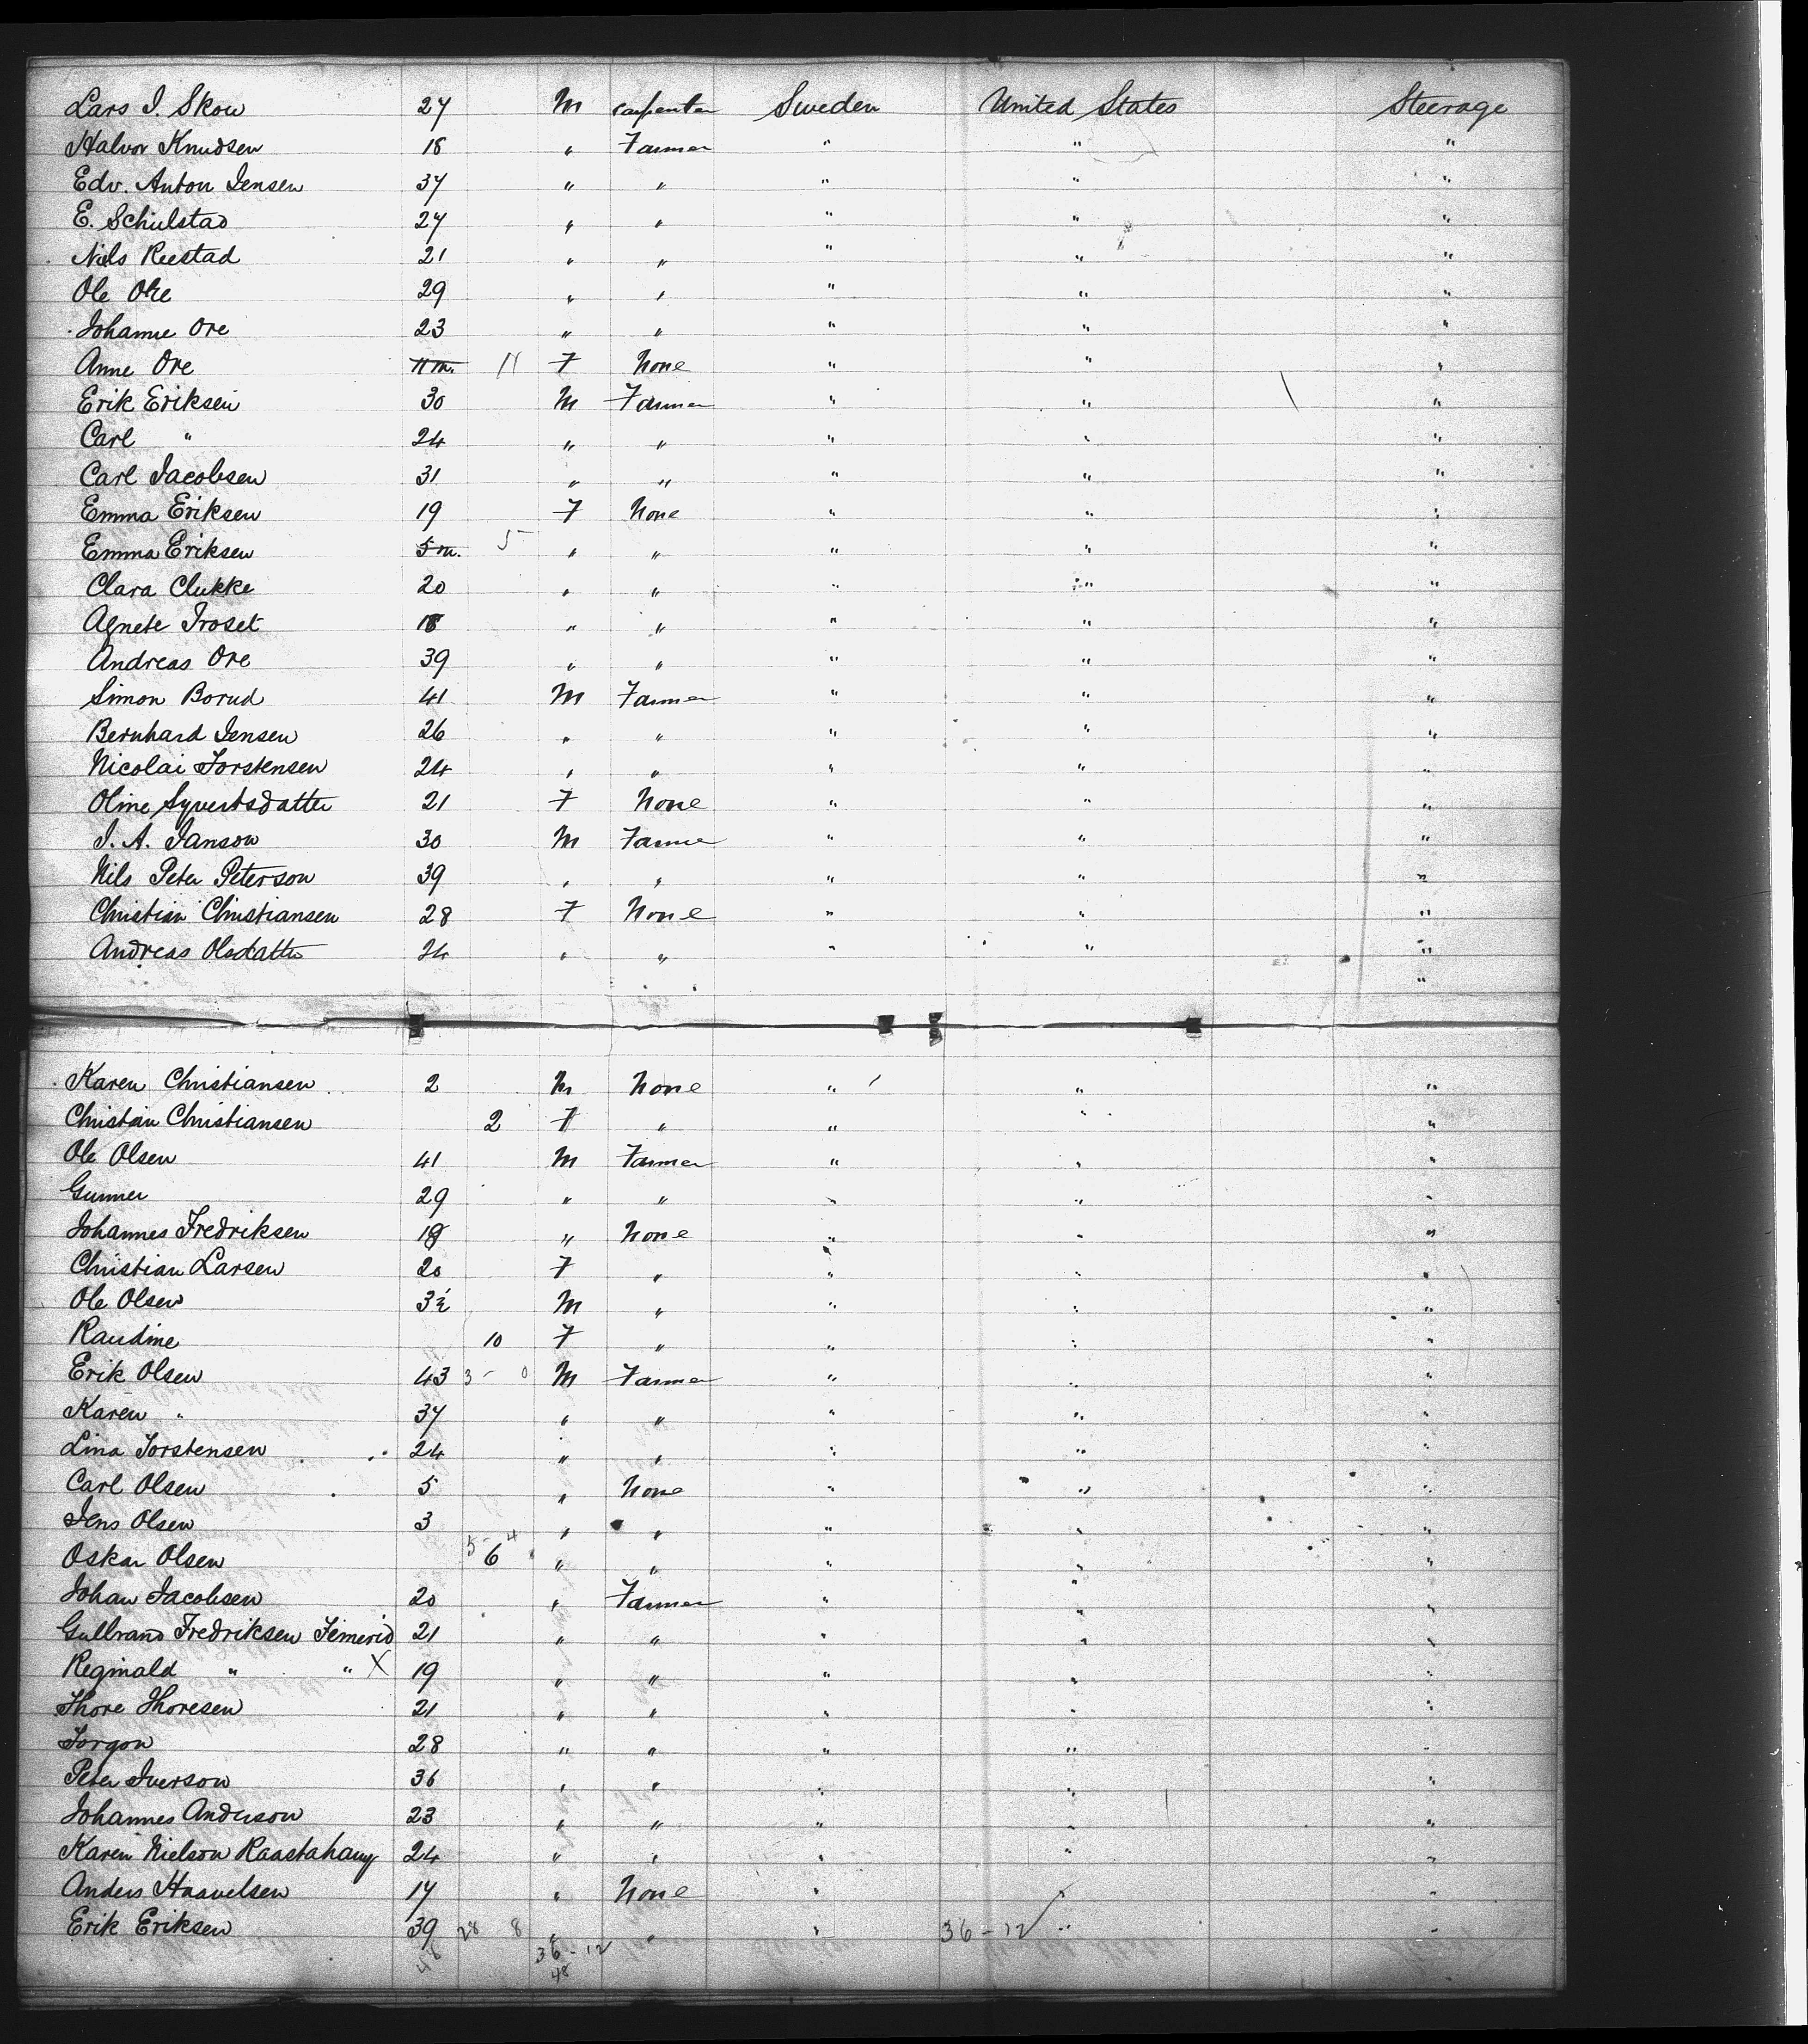 Lars J. Skow 27 M carpenter Sweden United States Steerage
Halvor Knudsen 18 " Farmer " " "
Edv. Anton Jensen 37 " " " " "
E. Schulstad 27 " " " " "
Nils Reestad 21 " " " " "
Ole Ore 29 " " " " "
Johanne Ore 23 " " " " "
Anne Ore 11 m. 11 F None " " "
Erik Eriksen 30 M Farmer " " "
Carl " 24 " " " " "
Carl Jacobsen 31 " " " " "
Emma Eriksen 19 F None " " "
Emma Eriksen 5 m. 5 " " " " "
Clara Clukke 20 " " " " "
Agnete Troset 18 " " " " "
Andreas Ore 39 " " " " "
Simon Borud 41 M Farmer " " "
Bernhard Jensen 26 " " " " "
Nicolai Torstensen 24 " " " " "
Oline Syvertsdatter 21 F None " " "
J. A. Janson 30 M Farmer " " "
Nils Peter Peterson 39 " " " " "
Christian Christiansen 28 F None " " "
Andreas Olsdatter 24 " " " " "
"
Karen Christiansen 2 M None " " "
Christian Christiansen 2 F " " " "
Ole Olsen 41 M Farmer " " "
Gunner 29 " " " " "
Johannes Fredriksen 19 " None " " "
Christian Larsen 20 F " " " "
Ole Olsen 3½ M " " " "
Randine 10 F " " " "
Erik Olsen 43 3 - 0 M Farmer " " "
Karen " 37 " " " " "
Lina Torstensen 24 " " " " "
Carl Olsen 5 " None " " "
Jens Olsen 3 " " " " "
Oskar Olsen 5 - 4 6 " " " " "
Johan Jacobsen 20 " Farmer " " "
Gulbrand Fredriksen 21 " " " " "
Reginald " " X 19 " " " " "
Thore Thoresen 21 " " " " "
Torgon 28 " " " " "
Peter Iverson 36 " " " " "
Johannes Anderson 23 " " " " "
Karen Nielson 24 " " " " "
Anders Haavelsen 17 " None " " "
Erik Eriksen 39 28 8 " " " 36 - 12 " "
48 36 - 12
48